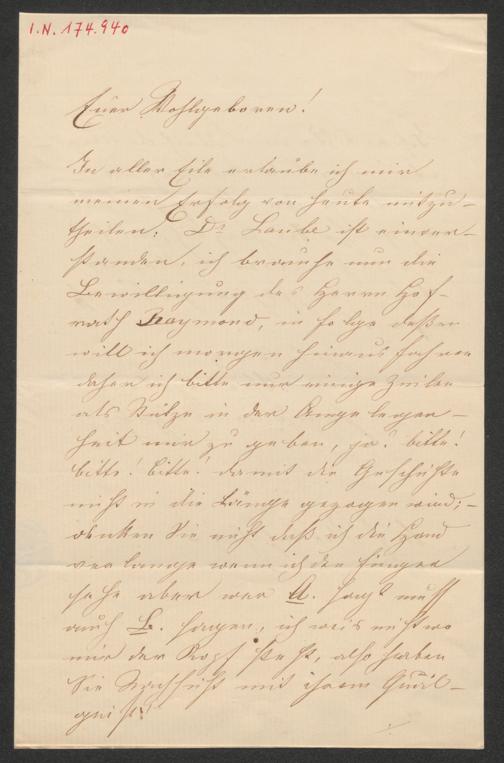 I.N. 174.940
Euer Wohlgeboren!
In aller Eile erlaube ich mir
meinen Erfolg von heute mitzu-
theilen. Dr Laube ist einver-
standen, ich brauche nur die
Bewilligung des Herrn Hof-
rath Raymond, in folge deßen
will ich morgen hinaus fahren
daher ich bitte nur einige Zeilen
als Stütze in der Angelegen-
heit mir zu geben, ja? bitte!
bitte! bitte! damit die Geschichte
nicht in die Länge gezogen wird; -
denken Sie nicht daß ich die Hand
verlange wenn ich den Finger
sehe aber wer A. sagt muss
auch B. sagen, ich weis nicht wo
mir der Kopf steht, also haben
Sie Nachsicht mit ihrem Quäl-
geist